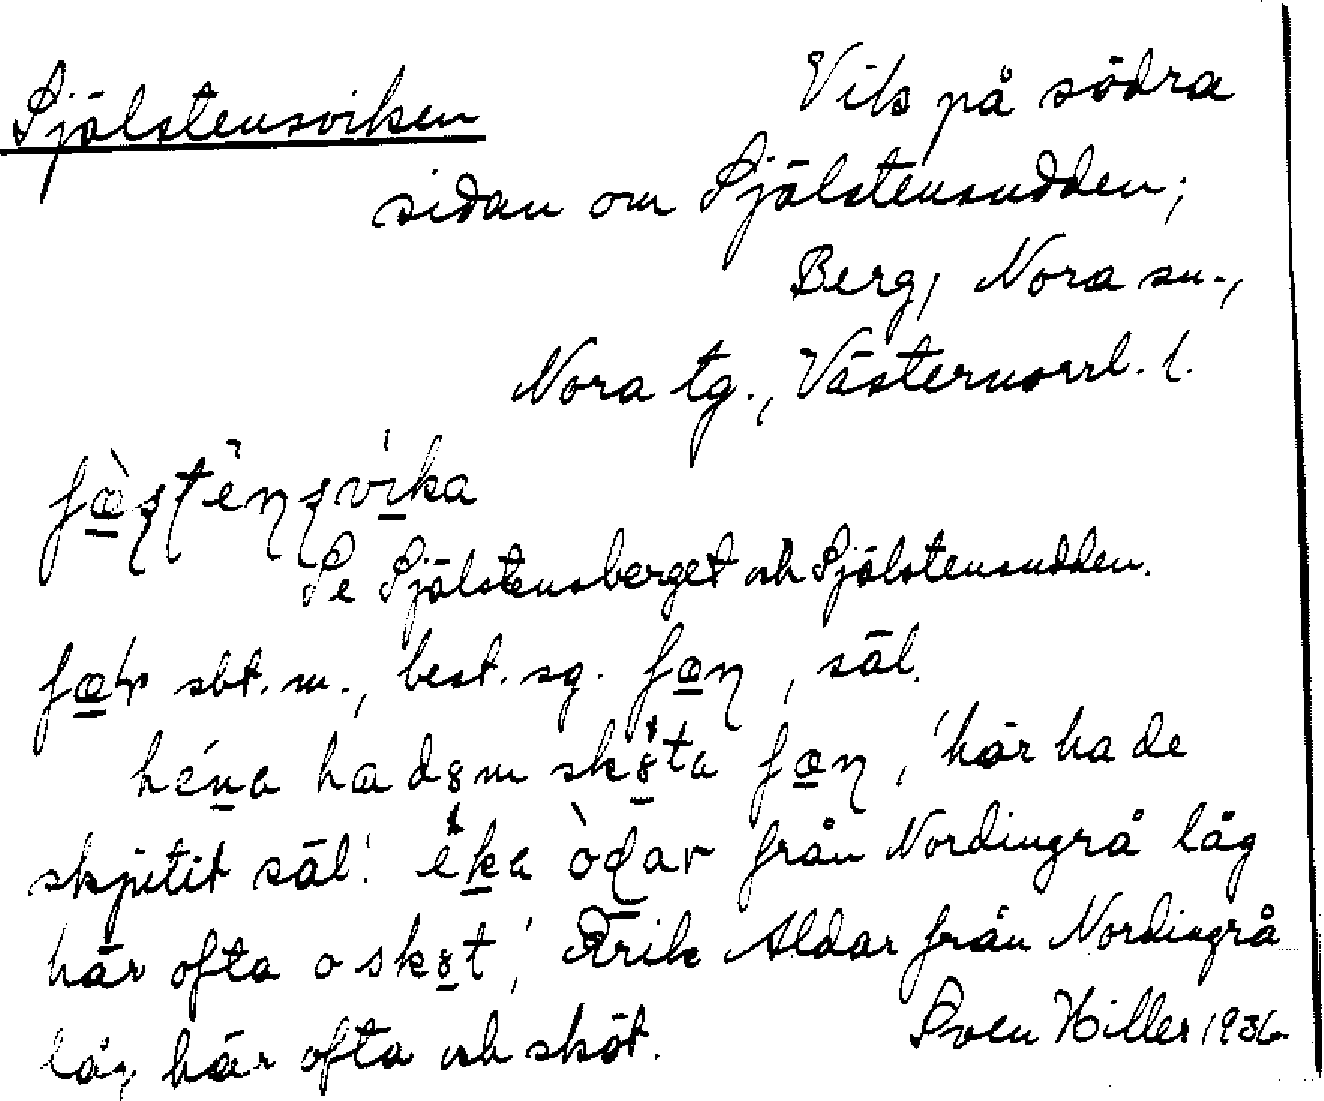 Själstensviken
Vik på södra
sidan om Själstensudden;
Berg, Nora sn.,
Nora tg., Västernorrl. l.
Se Själstensberget och Själstensudden.
sbt. m., best. sg. , säl.
ha 'här ha de
skjutit säl'. från Nordingrå låg
här ofta o sköt', Erik Aldar från Nordingrå
låg här ofta och sköt.
Sven Hiller 1936